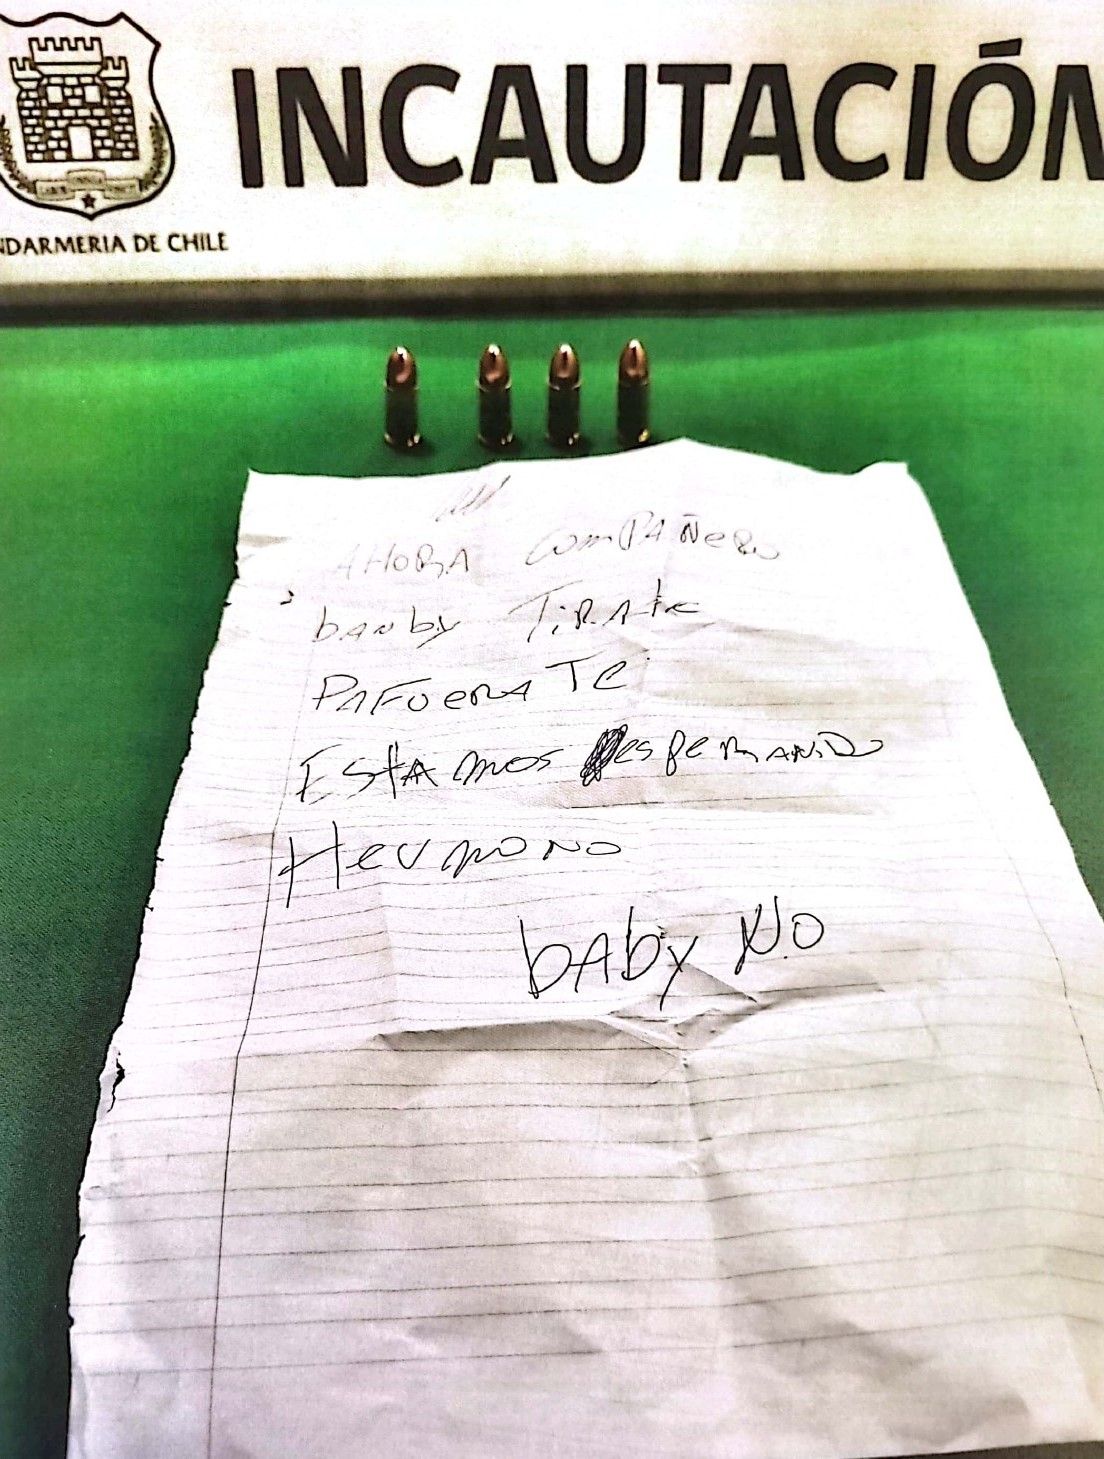 INCAUTACIÓN
NDARMERIA DE CHILE
AHORA COMPAÑERO
bANby TiRAte
PAFUERA TE
EStAMOS esperANDO
HeUMONO
bAby NO